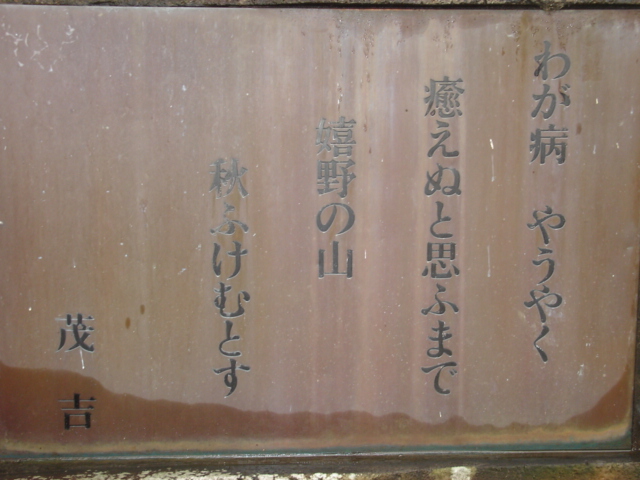 わが病　やうやく
癒えぬと思ふまで
嬉野の山
秋ふけむとす
茂吉